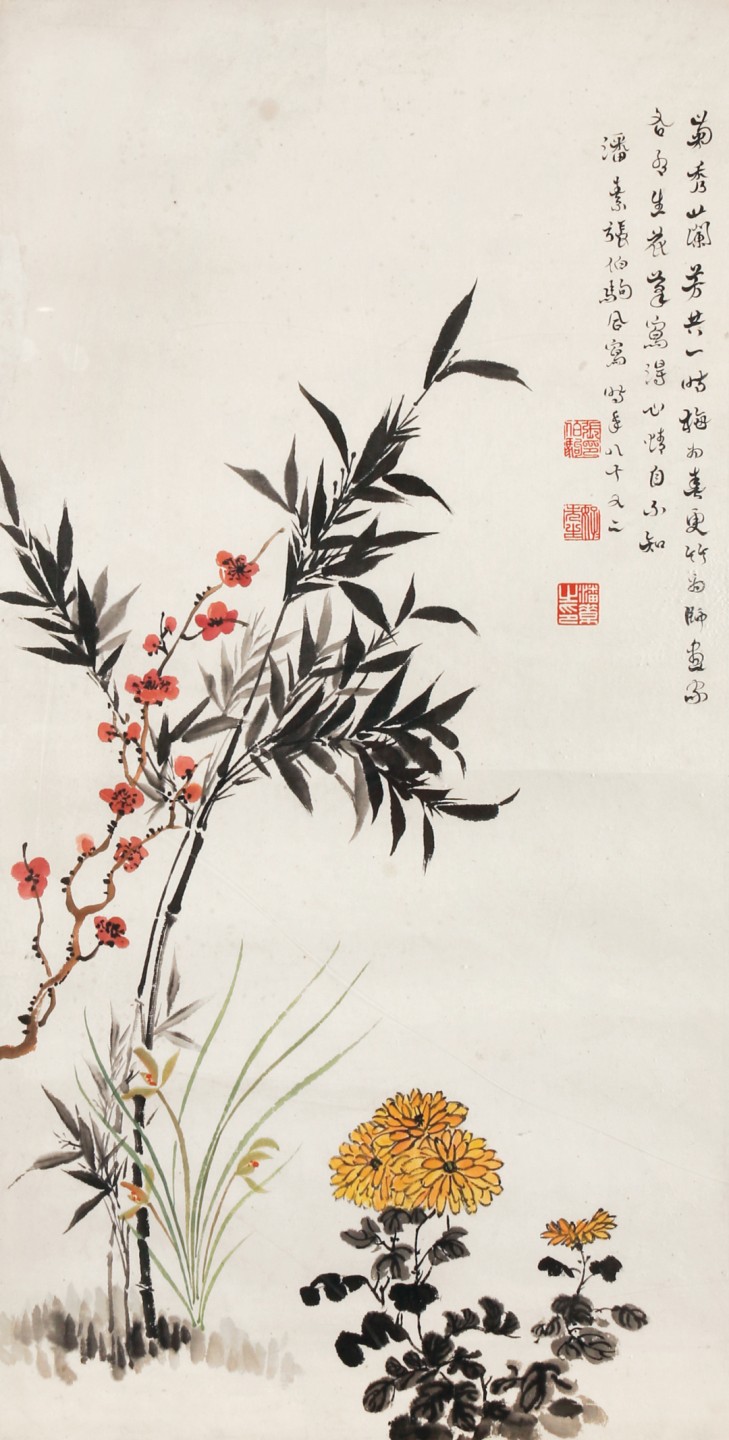 菊秀蘭芳共一時梅為春竹為師畫家
各有生花筆寫得心情自不知
潘素張伯駒寫時年八十又二
張印伯駒
潘素之印